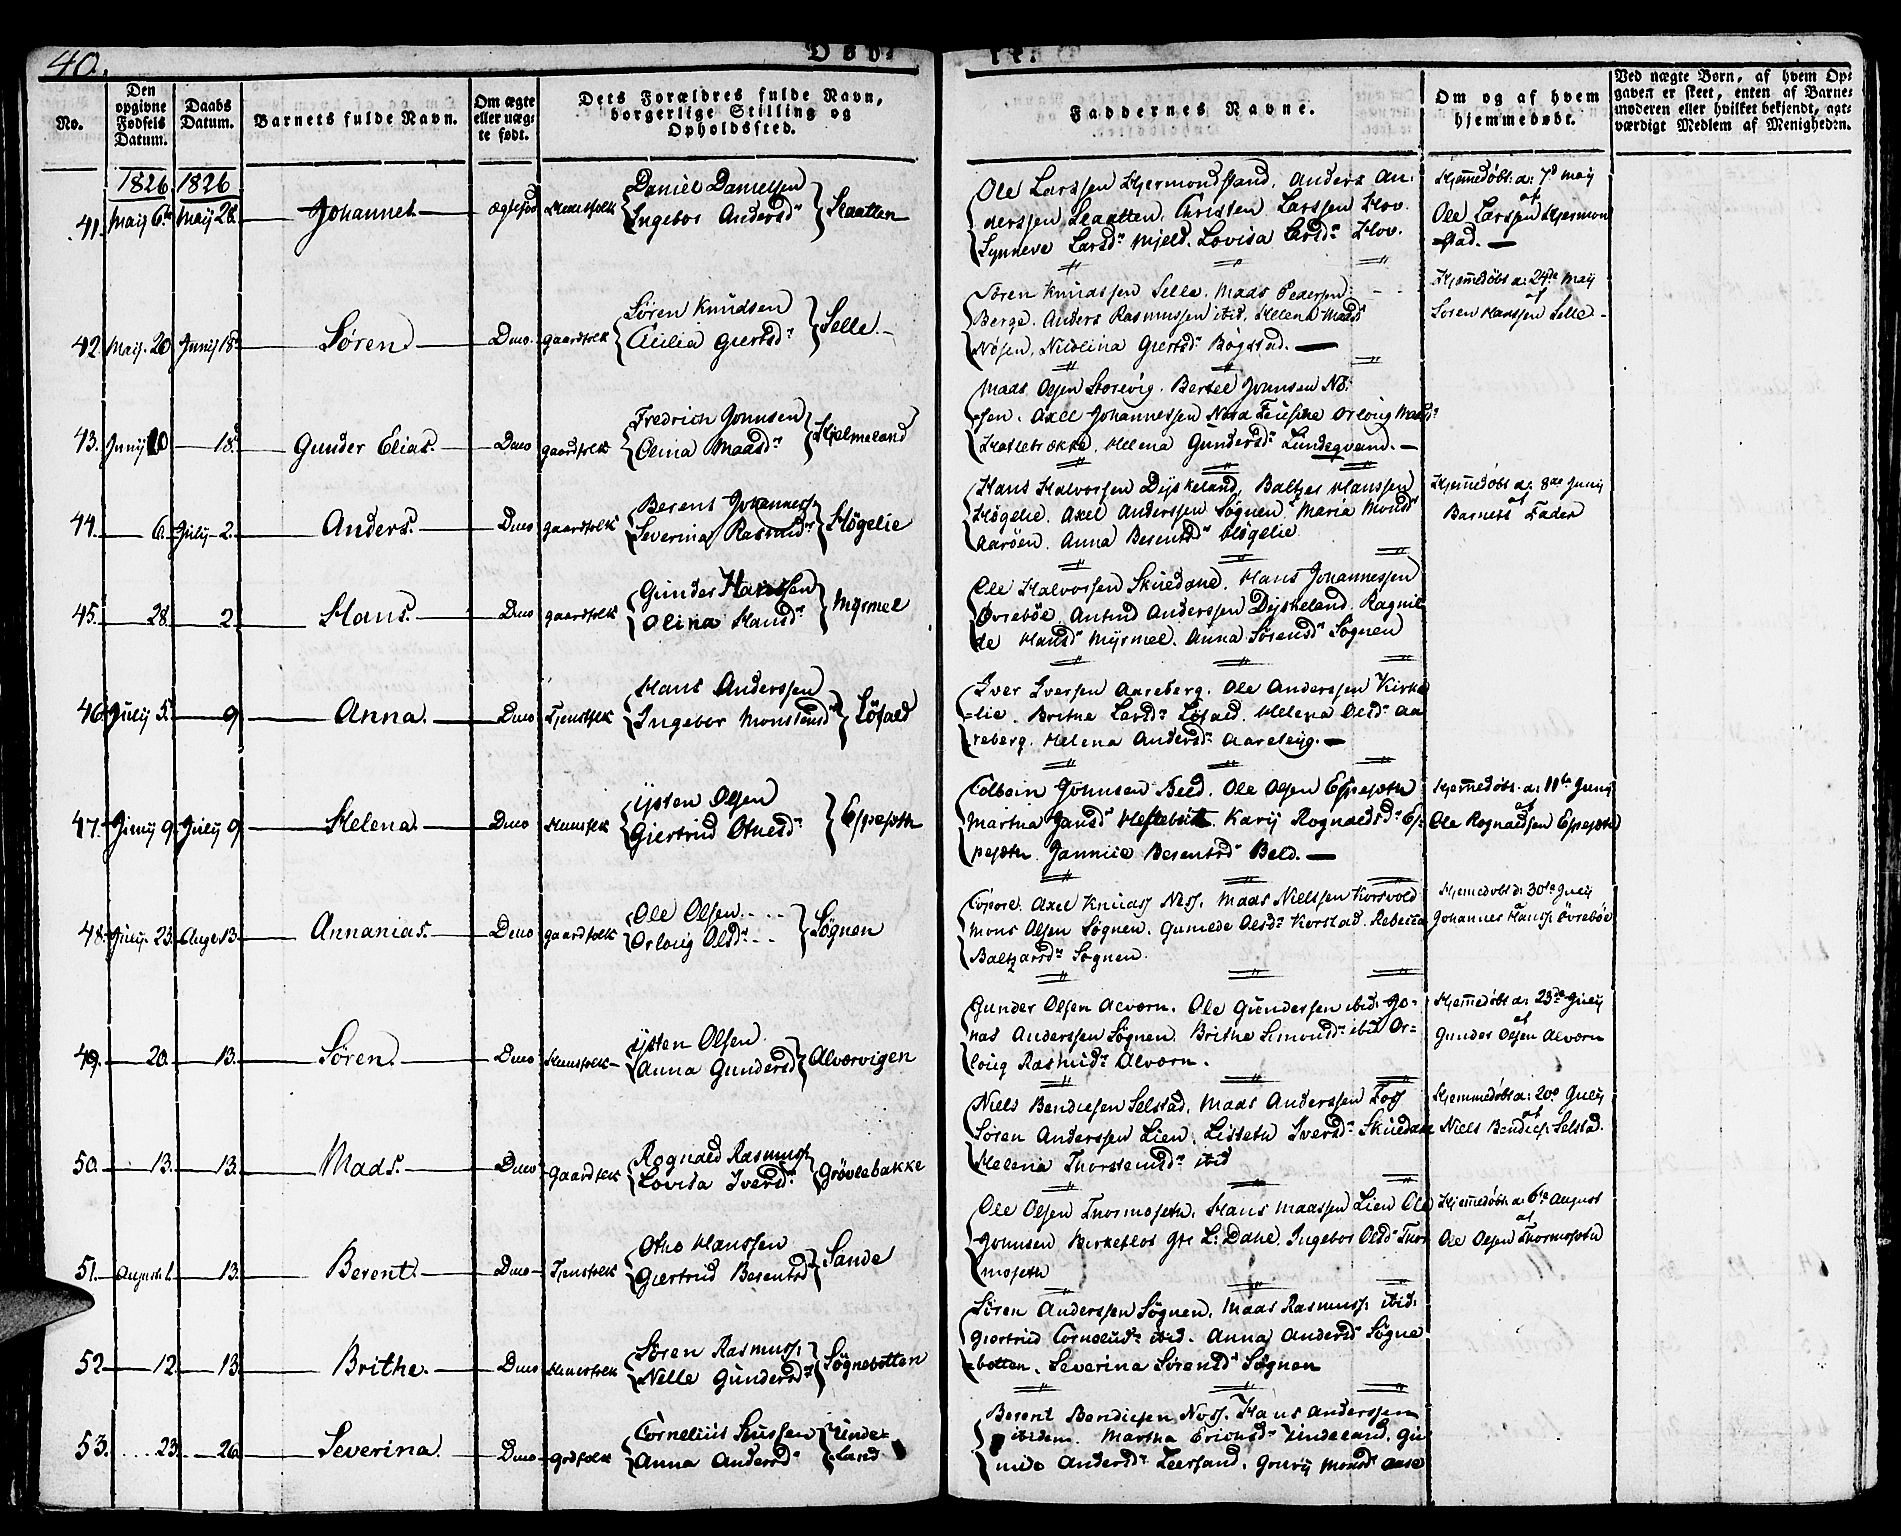 40.
Døb-
te.
No.
Den opgivne Fødsels Datum.
Daabs Datum.
Barnets fulde Navn.
Om ægte eller uægte født.
Dets Forældres fulde Navn, borgerlige Stilling og Opholdssted.
Faddernes Navne.
Om og af hvem hjemmedøbt.
Ved uægte Børn, af hvem Opgaven er skeet, enten af Barnemoderen eller hvilket bekjendt, agtværdigt Medlem af Menigheden.
1826 1826
41. Maij 6te Maij 28. Johannes. Daniel Danielsen Ingebor Andersdr Slaatten
Ole Larssen Hjermondstand. Anders An-
derssen Slaatten. Christen Larssen Hov.
Synneve Larsdr Mjeld. Lovisa Larsdr Hov.
Hjemmedøbt d: 7d Maij
af
Ole Larssen Hjermon
=stad.
42. Maij. 20 Junij 18. Søren. Dmo. gaardfolk Søren Knudsen Cicilia Giertsdr Selle.
Søren Knudssen Selle. Mads Pedersen
Berge. Anders Rasmussen ibid. Helena Madsdr
Nøsen. Nicolina Giertsdr Bogstad.
Hjemmedøbt d: 24de Maij
af
Søren Hanssen Selle
43. Junij 10 18. Gunder Elias. Dmo gaardfolk Fredrich Jonnsen Olina Madsdr Hjelmeland
Mads Olsen Storevig. Bertel Jonnsen Nø-
sen. Axel Johannessen
Hatlebrække. Helena Gundersdr Lundeqvand.
44. 6. Julij 2. Anders. Dmo gaardfolk Berent Johanness. Severina Rasmdr Høgelie
Hans Halvorsen Dyskeland, Baltzer Hanssen
Høgelie. Axel Anderssen Søgnen. Maria Monsdr
Aarøen. Anna Berentsdr Høgelie
Hjemmedøbt d: 8de Junij
af
Barnets Fader
45. 28. 2. Hans. Dmo gaardfolk Gunder Hanssen Olina Hansdr Myrmel
Ole Halvorsen Skuedane. Hans Johannessen
Øvrebøe. Anfind Anderssen Dyskeland. Ragnil
de Hansdr Myrmel. Anna Sørensdr Søgnen
46. Julij 5. 9 Anna. Dmo Tjenstfolk Hans Anderssen Ingebor Monsdr Løfald
Iver Iversen Aareberg. Ole Anderssen Kirke
=lie. Brithe Larsdr Løfald. Helena Olsdr Aa
reberg. Helena Andersdr
47. Junij 9. Julij 9 Helena. Dmo Huusfolk Ysten Olsen Giertrud Othesdr Espeseth
Colbein Jonnsen Beld. Ole Olsen Espeseth
Martha Jansdr Karij Rognaldsdr Es-
peseth. Jannice Berentsdr Beld.
Hjemmedøbt d: 11te Junij
af
Ole Rognaldsen Espeseth
48. Julij. 23. Aug. 13. Annanias. Dmo gaardfolk Ole Olsen. Orloug Olsdr Søgnen
Axel Knuds. Ness. Mads Nielssen Korsvold
Mons Olsen Søgnen. Gunilde Olsdr Korstad. Rebecca
Baltzarsdr Søgnen.
Hjemmedøbt d: 30te Julij
Johannes Hanss. Øvrebøe
49. 20. 13. Søren. Dmo Huusfolk Ysten Olsen. Anna Gundersd Alvørvigen
Gunder Olsen Alvørn. Ole Gundersen ibid. Jo-
nas Anderssen Søgnen. Brithe Simonsdr ibid Or-
loug Rasmusdr Alvørn.
Hjemmedøbt d: 23de Julij
af
Gunder Olsen Alvørn
50. 13. 13. Mads. Dmo Gaardfolk Rognald Rasmuss. Lovisa Iversdr Grøvlebakke
Niels Bendicsen Selstad. Mads Anderssen Foss
Søren Anderssen Lien. Lisbeth Iversdr Skuedane
Helena Thorstensdr ibid
Hjemmedøbt d: 20de Julij
af
Niels Bendics. Selstad.
51. August 1. 13. Berent. Dmo Tjenstfolk Otho Hanssen Giertrud Berentsd Sande
Ole Olsen Thormoseth. Hans Madssen Lien Ole
Jonnsen Birkeflot Gr L: Dale. Ingebor Olsdr Thor
moseth
Hjemmedøbt d: 6te August
af
Ole Olsen Thormoseth
52. 12. 13. Brithe. Dmo Huusfolk Søren Rasmuss. Nille Gundersdr Søgnebotten
Søren Anderssen Søgnen. Mads Rasmuss. ibid.
Giertrud Corneliidr ibid. Anna Andersdr Søgne
=botten. Severina Sørensdr Søgnen
53. 23. 20. Severina. Dmo Grdfolk Cornelius Siussen Anna Andersdr Unde-land
Berent Bendicsen Noss. Hans Anderssen
ibidem. Martha Erichsdr Undeland. Gu
nilde Andersdr Leersand. Gourij Monsdr Aase